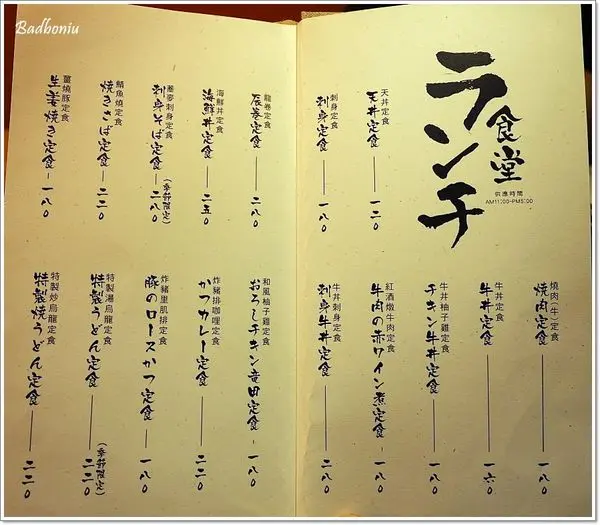 Badboniu
ランチ
食堂
供應時間
AM11:00~PM5:00
天丼定食
天丼定食 一二〇
刺身定食
刺身定食 一八〇
燒肉(牛)定食
焼肉定食 一八〇
牛丼定食
牛丼定食 一六〇
牛丼柚子雞定食
チキン牛丼定食 一八〇
紅酒燉牛肉定食
牛肉の赤ワイン煮定食 一八〇
牛丼刺身定食
刺身牛丼定食 二八〇
龍卷定食
辰巻定食 二八〇
海鮮丼定食
海鮮丼定食 二五〇
蕎麥刺身定食
刺身そば定食 二八〇
(季節限定)
鯖魚燒定食
焼きさば定食 二二〇
薑燒豚定食
生姜焼き定食 一八〇
和風柚子雞定食
おろしチキン竜田定食 一八〇
炸豬排咖哩定食
かつカレー定食 二二〇
炸豬里肌排定食
豚のロースかつ定食 一八〇
特製湯烏龍定食
特製うどん定食 二二〇
(季節限定)
特製炒烏龍定食
特製焼うどん定食 二二〇